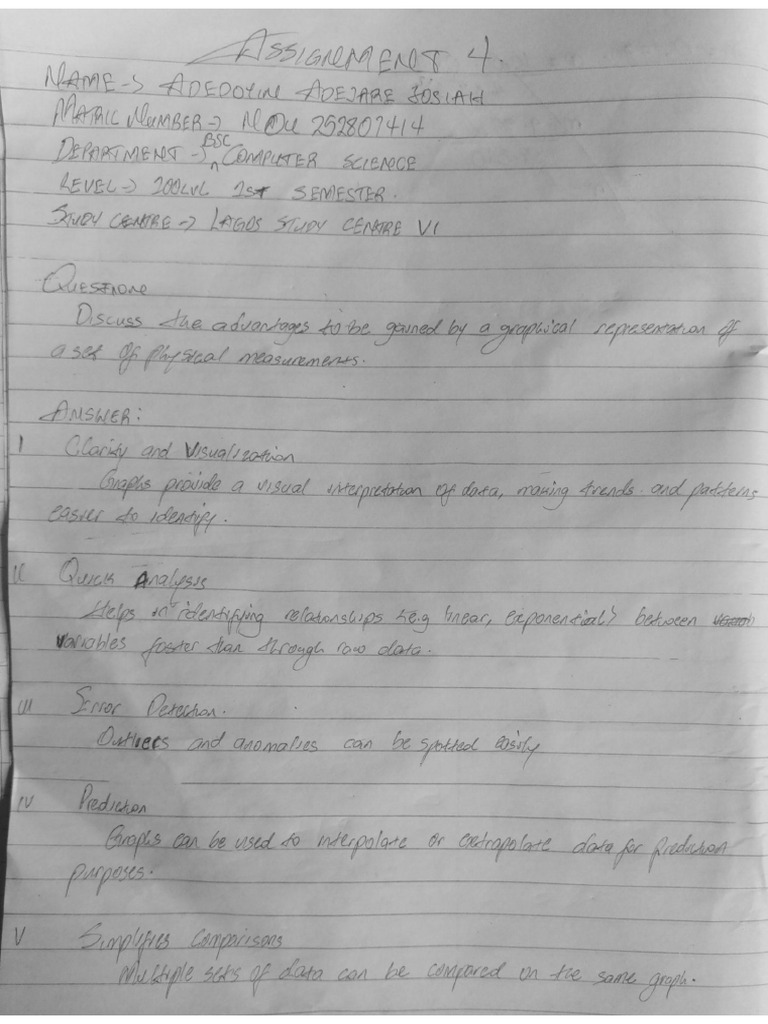 ASSIGNMENT 4.
NAME -> ADEDOYIN ADEJARE JOSIAH
MATRIC NUMBER -> NOU 252807414
DEPARTMENT -> BSC COMPUTER SCIENCE
LEVEL -> 200LVL 1st SEMESTER.
STUDY CENTRE -> LAGOS STUDY CENTRE VI
QUESTION
Discuss the advantages to be gained by a graphical representation of
a set of physical measurements.
ANSWER:
I Clarity and Visualization
Graphs provide a visual interpretation of data, making trends and patterns
easier to identify.
II Quick Analysis
Helps in identifying relationships (e.g linear, exponential) between
variables faster than through raw data.
III Error Detection.
Outliers and anomalies can be spotted easily
IV Prediction
Graphs can be used to interpolate or extrapolate data for prediction
purposes.
V Simplifies Comparisons
Multiple sets of data can be compared on the same graph.